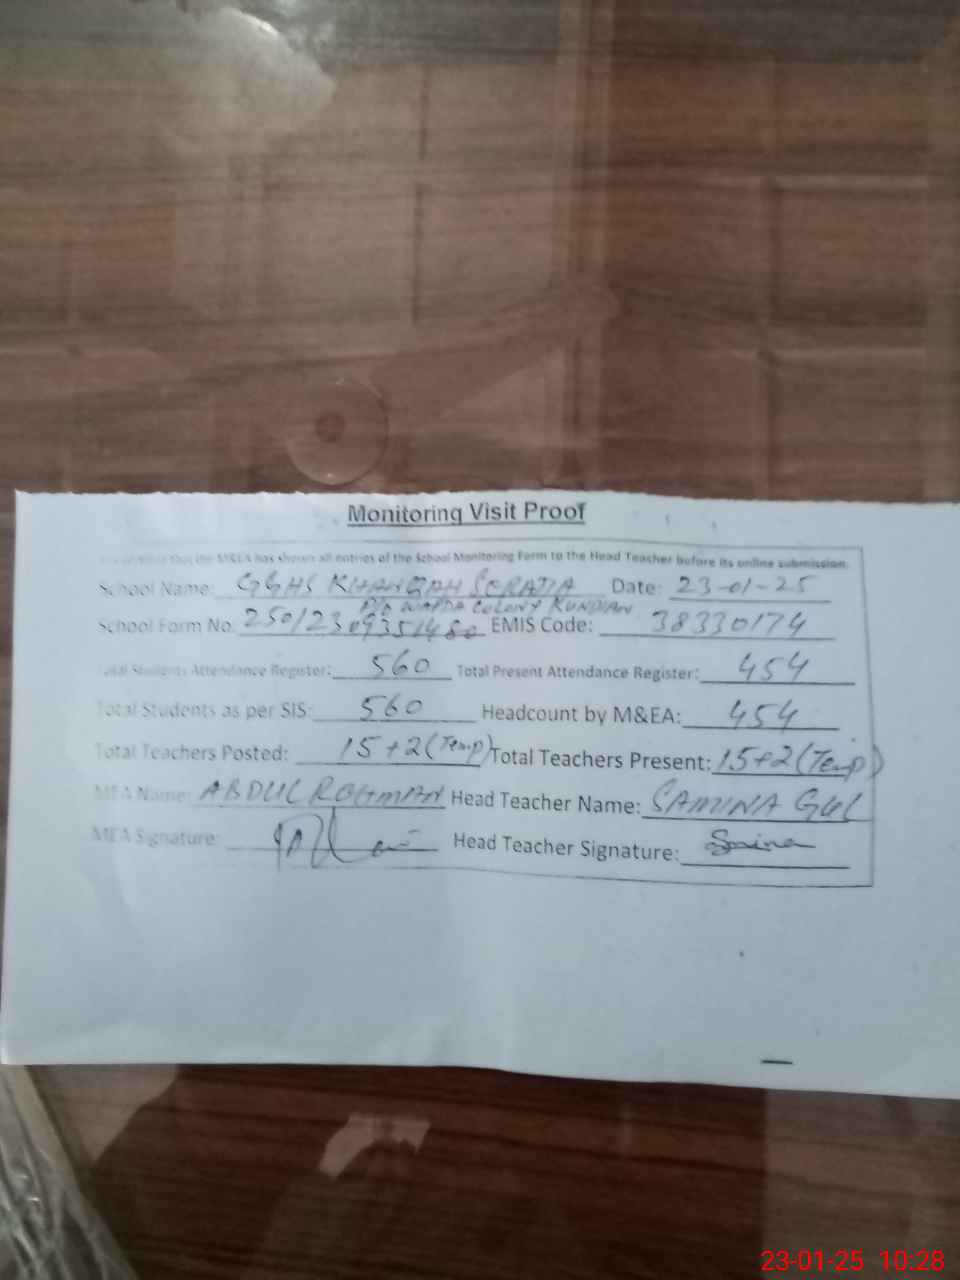 Monitoring Visit Proof
that the M&EA has shown all entries of the School Monitoring Form to the Head Teacher before its online submission.
School Name: GGHS KHANQAH SERAJIA Date: 23-01-25
P/O WAPDA COLONY KUNDIAN
School Form No: 25012309351480 EMIS Code: 38330174
Total Students Attendance Register: 560 Total Present Attendance Register: 454
Total Students as per SIS: 560 Headcount by M&EA: 454
Total Teachers Posted: 15+2(Temp) Total Teachers Present: 15+2(Temp)
MEA Name: ABDUL REHMAN Head Teacher Name: SAMINA GUL
MEA Signature: Head Teacher Signature: Samina
23-01-25 10:28